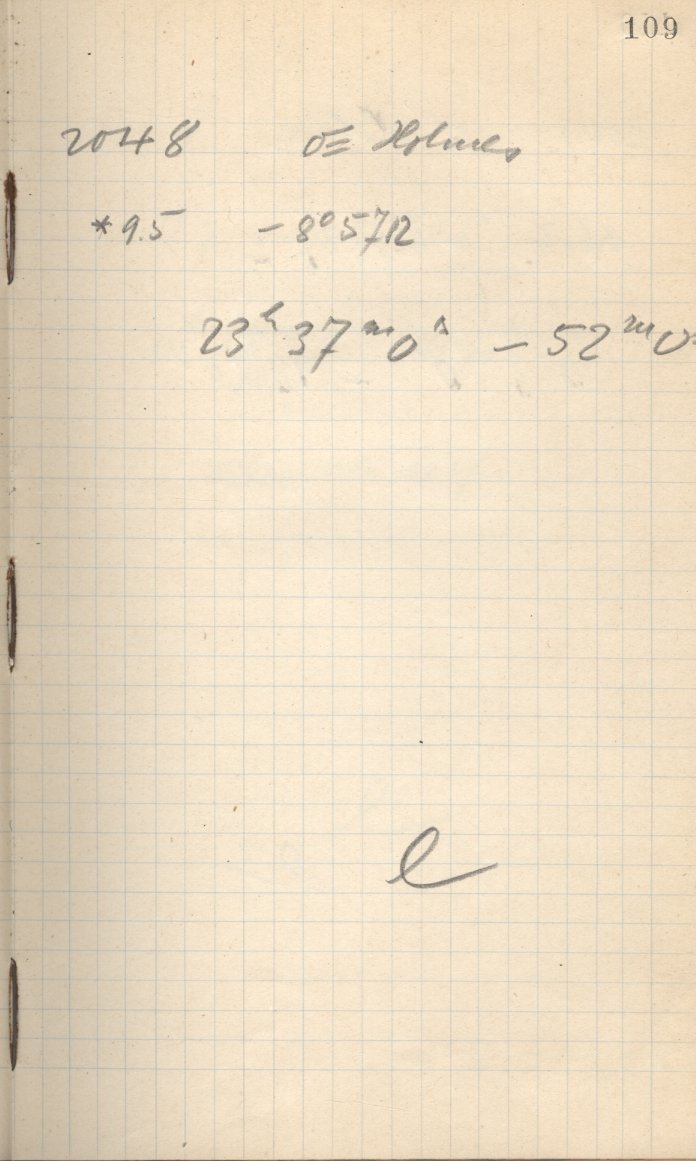 109
2048 σΞ Holmes
*9.5 -8°5712
23ʰ37ᵐ0ˢ - 52ᵐ0ˢ
e